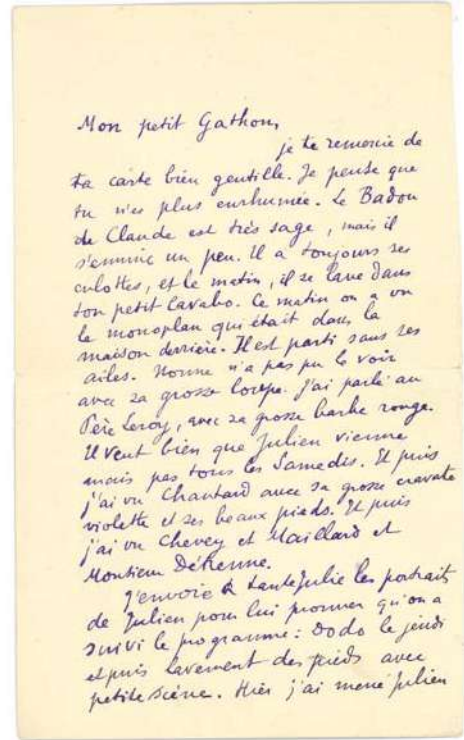 Mon petit Gathon,
je te remercie de
ta carte bien gentille. Je pense que
tu n'es plus enrhumée. Le Badou
de Claude est très sage, mais il
s'ennuie un peu. Il a toujours ses
culottes, et le matin, il se lave dans
son petit lavabo. Ce matin on a vu
le monoplan qui était dans la
maison derrière. Il est parti sans ses
ailes. n'a pas pu le voir
avec sa grosse loupe. J'ai parlé au
Père Leroy, avec sa grosse barbe rouge.
Il veut bien que Julien vienne
mais pas tous les Samedis. Et puis
j'ai vu Chautard avec sa grosse cravate
violette et ses beaux pieds. Et puis
j'ai vu Chevey et Maillard et
Monsieur Détienne.
J'envoie à tante Julie les portraits
de Julien pour lui prouver qu'on a
suivi le programme : Dodo le jeudi
et puis lavement des pieds avec
petite scène. Hier j'ai mené Julien